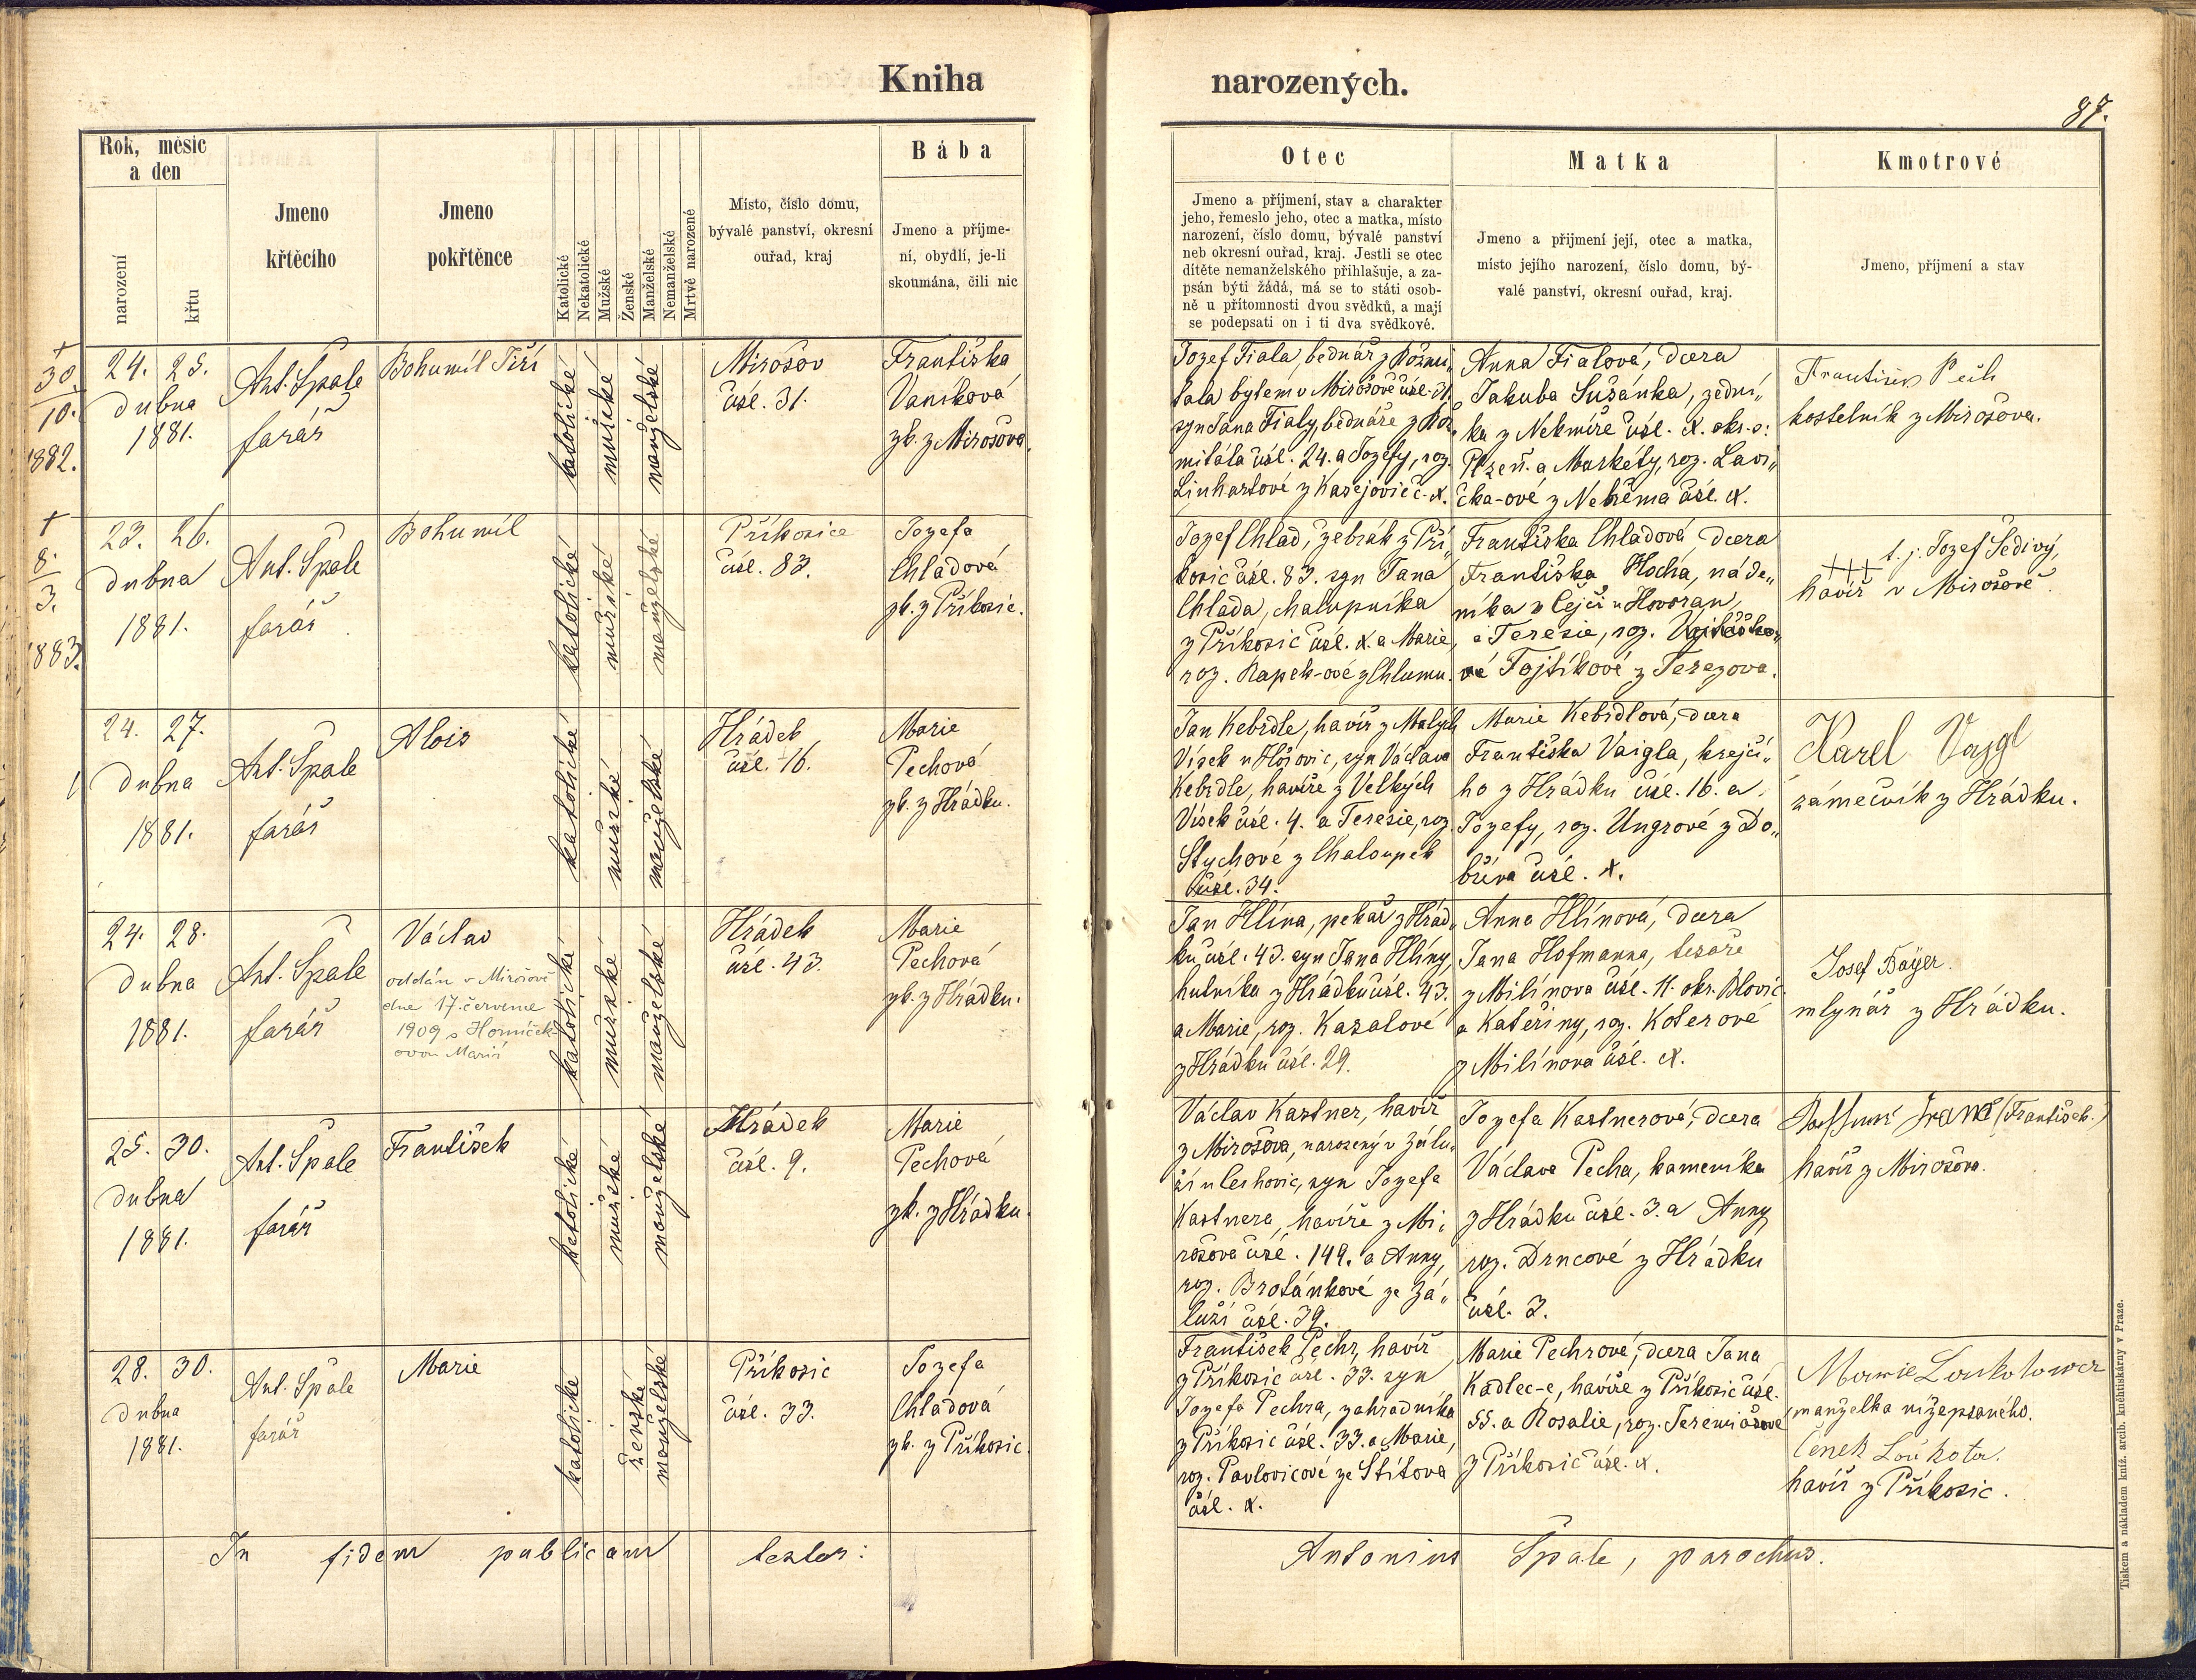 Kniha narozených.
87.
Rok, měsíc
a den
narození
křtu
Jmeno
křtěcího
Jmeno
pokřtěnce
Katolické
Nekatolické
Mužské
Ženské
Manželské
Nemanželské
Mrtvě narozené
Místo, číslo domu,
bývalé panství, okresní
ouřad, kraj
Bába
Jmeno a příjme-
ní, obydlí, je-li
skoumána, čili nic
Otec
Jmeno a příjmení, stav a charakter
jeho, řemeslo jeho, otec a matka, místo
narození, číslo domu, bývalé panství
neb okresní ouřad, kraj. Jestli se otec
dítěte nemanželského přihlašuje, a za-
psán býti žádá, má se to státi osob-
ně u přítomnosti dvou svědků, a mají
se podepsati on i ti dva svědkové.
Matka
Jmeno a přijmení její, otec a matka,
místo jejího narození, číslo domu, bý-
valé panství, okresní ouřad, kraj.
Kmotrové
Jmeno, příjmení a stav
†
30.
10.
1882.
24. 25.
dubna
1881.
Ant. Špale
farář
Bohumil Jiří
katolické
mužské
manželské
Mirošov
čísl. 31.
Františka
Vaníková
zk. z Mirošova.
Jozef Fiala, bednář z Rožmi„
tála bytem v Mirošově čísl. 31.
syn Jana Fialy, bednáře z Rož„
mitála čísl. 24. a Jozefy, roz.
Linhartové z Kasejovic č. X.
Anna Fialová, dcera
Jakuba Sušánka, zední„
ka z Nekmíře čísl. X. okr. s:
Plzeň. a Markéty, roz. Lavi„
čka-ové z čísl. X.
František Pech
kostelník z Mirošova.
†
8.
3.
1883.
23. 26.
dubna
1881.
Ant. Špale
farář
Bohumil
katolické
mužské
manželské
Příkosice
čísl. 83.
Jozefa
Chladová
zk. z Příkosic.
Jozef Chlad, žebrák z Pří„
kosic čísl. 83. syn Jana
Chlada, chalupníka
z Příkosic čísl. X. a Marie,
roz. Rapek-ové z Chlumu.
Františka Chladová, dcera
Františka Hocha, náde„
níka z Čejči u Hovoran,
a Terezie, roz.
vé Fojtíkové z Terezova.
+++ t. j. Jozef Šedivý,
havíř v Mirošově.
24. 27.
dubna
1881.
Ant. Špale
farář
Alois
katolické
mužské
manželské
Hrádek
čísl. 16.
Marie
Pechová
zk. z Hrádku.
Jan Kebrdle, havíř z Malých
Vísek u Hořovic, syn Václava
Kebrdle, havíře z Velkých
Vísek čísl. 4. a Terezie, roz.
Stychové z Chaloupek
čísl. 34.
Marie Kebrdlová, dcera
Františka Vaigla, krejčí„
ho z Hrádku čísl. 16. a
Jozefy, roz. Ungrové z Do„
bříva čísl. X.
Karel Vajgl
zámečník z Hrádku.
24. 28.
dubna
1881.
Ant. Špale
farář
Václav
oddán v Mirošově
dne 17. července
1909 s Horníček-
ovou Marií
katolické
mužské
manželské
Hrádek
čísl. 43.
Marie
Pechová
zk. z Hrádku.
Jan Hlína, pekař z Hrád„
ku čísl. 43. syn Jana Hlíny,
hutníka z Hrádku čísl. 43.
a Marie, roz. Kazalové
z Hrádku čísl. 29.
Anna Hlínová, dcera
Jana Hofmanna, tesaře
z Milínova čísl. 11. okr. Blovic
a Kateřiny, roz. Koterové
z Milínova čísl. X.
Josef Bayer.
mlynář z Hrádku.
25. 30.
dubna
1881.
Ant. Špale
farář
František
katolické
mužské
manželské
Hrádek
čísl. 9.
Marie
Pechová
zk. z Hrádku.
Václav Kastner, havíř
z Mirošova, narozený v Zálu„
ží u Leshovic, syn Jozefa
Kastnera, havíře z Mi„
rošova čísl. 149. a Anny,
roz. Brotánkové ze Zá„
luží čísl. 39.
Jozefa Kastnerová, dcera
Václava Pecha, kameníka
z Hrádku čísl. 3. a Anny
roz. Drncové z Hrádku
čísl. 3.
Franz (František.)
havíř z Mirošova.
28. 30.
dubna
1881.
Ant. Špale
farář
Marie
katolické
ženské
manželské
Příkosic
čísl. 33.
Jozefa
Chladová
zk. z Příkosic.
František Pechr, havíř
z Příkosic čísl. 33. syn
Jozefa Pechra, zahradníka
z Příkosic čísl. 33. a Marie,
roz. Pavlovicové ze Štítova
čísl. X.
Marie Pechrová, dcera Jana
Kadlec-e, havíře z Příkosic čísl.
55. a Rosalie, roz. Jeremiášové
z Příkosic čísl. X.
Marie Loukotowa
manželka nížepsaného.
Čeněk Loukota.
havíř z Příkosic.
In fidem publicam testor: Antonius Špale, parochus.
Tiskem a nákladem kníž. arcib. knihtiskárny v Praze.